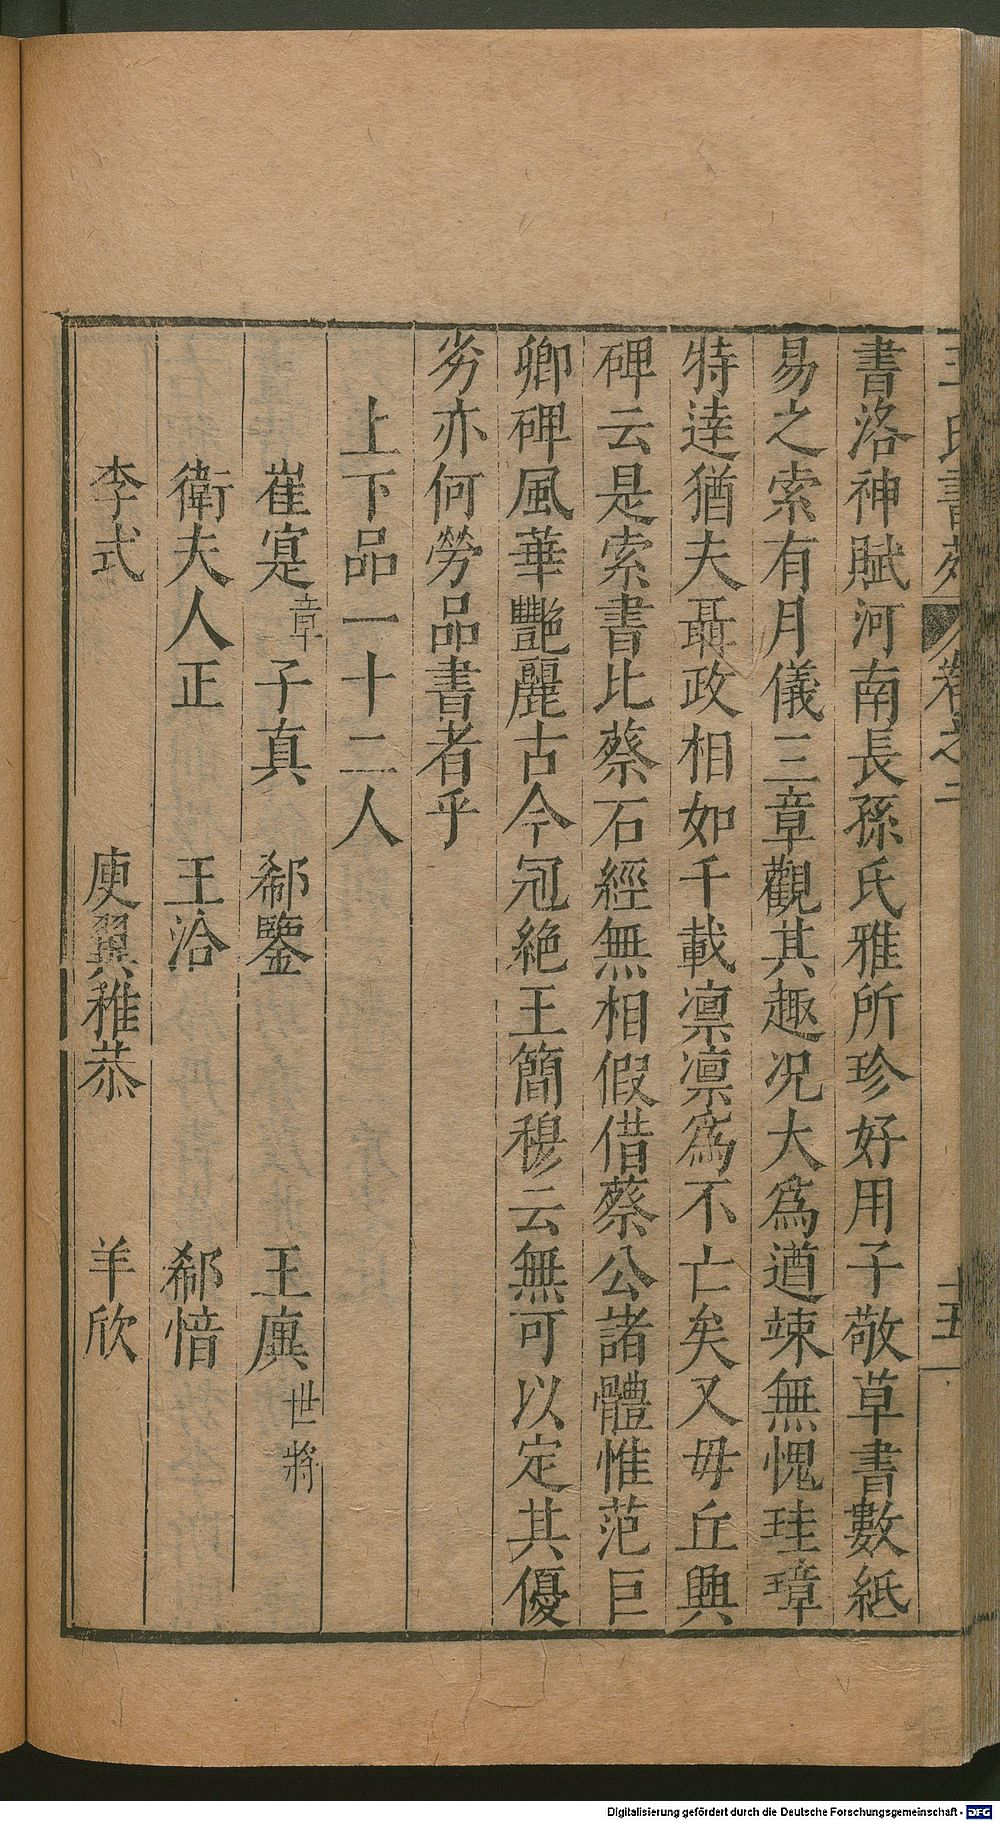 王氏書苑 卷之二 十五
書洛神賦河南長孫氏雅所珍好用子敬草書數紙
易之索有月儀三章觀其趣况大爲遒竦無愧珪璋
特逹猶夫聶政相如千載凛凛爲不亡矣又毋丘興
碑云是索書比蔡石經無相假借蔡公諸體惟范巨
卿碑風華艷麗古今冠絶王簡穆云無可以定其優
劣亦何勞品書者乎
上下品一十二人
崔寔章 子真 郗鑒 王廙世將
衛夫人正 王洽 郗愔
李式 庾翼稚恭 羊欣
Digitalisierung gefördert durch die Deutsche Forschungsgemeinschaft - DFG